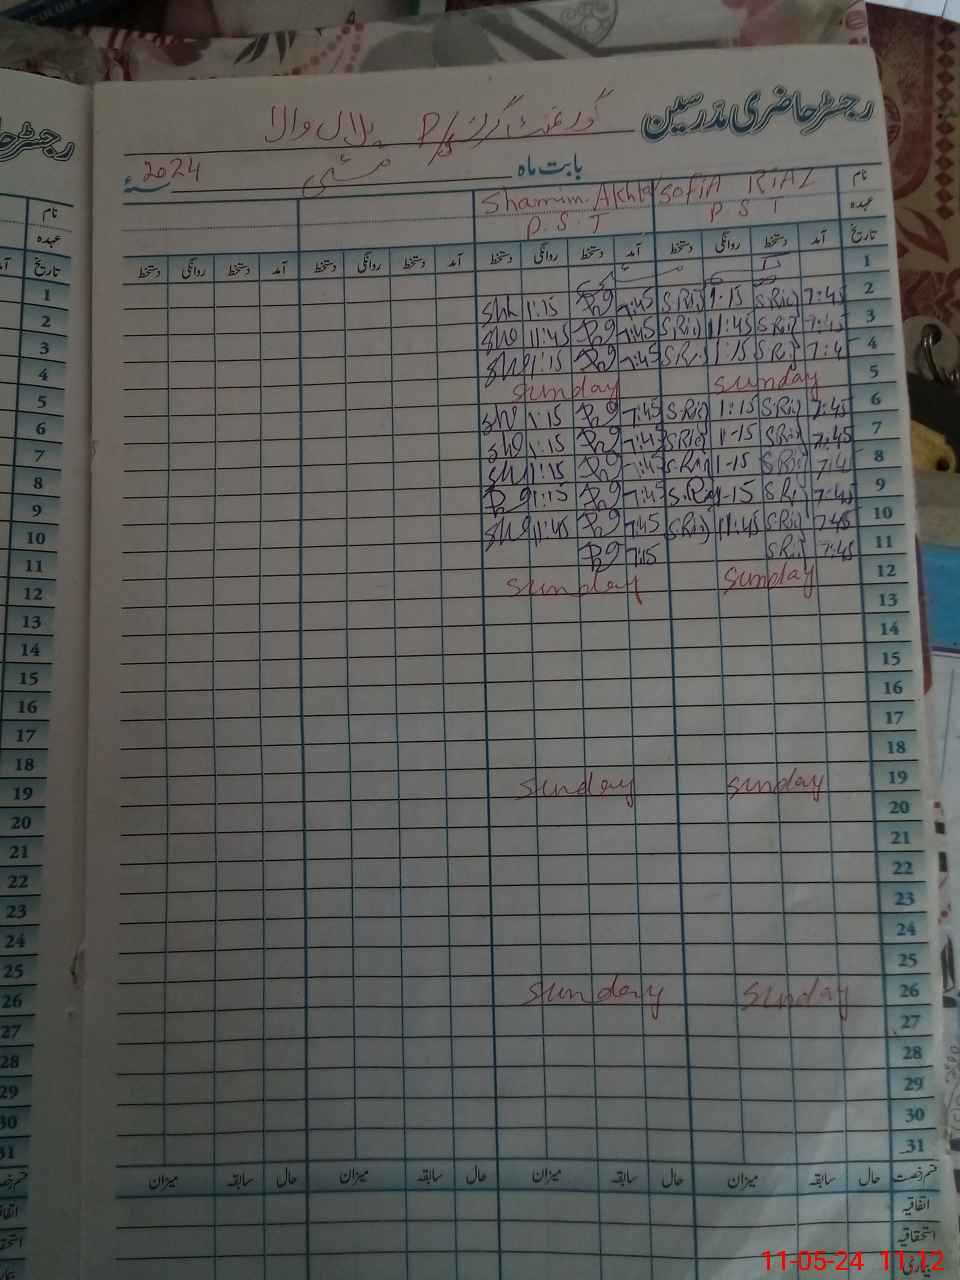 رجسٹر حاضری مدرسین گورنمنٹ گرلز P/S بلال والا
بابت ماہ مئی 2024 سنۂ
نام Sofia Riaz Shamim Akhtar
عہدہ P.S.T P.S.T
تاریخ آمد دستخط روانگی دستخط آمد دستخط روانگی دستخط آمد دستخط روانگی دستخط آمد دستخط روانگی دستخط
1
2 7:45 S.Riaz 1-15 S.Riaz 7:45 1:15
3 7:45 S.Riaz 11:45 S.Riaz 7:45 11:45
4 7:4 S.Riaz 1:15 S.Riaz 7:45 1:15
5 Sunday Sunday
6 7:45 S.Riaz 1:15 S.Riaz 7:45 1:15
7 7:45 S.Riaz 1-15 S.Riaz 7:45 1:15
8 7:4 S.Riaz 1-15 S.Riaz 7:45 1:15
9 7:45 S.Riaz 1-15 S.Riaz 7:45 1:15
10 7:45 S.Riaz 11:45 S.Riaz 7:45 11:45
11 7:45 S.Riaz 7:15
12 Sunday Sunday
13
14
15
16
17
18
19 Sunday Sunday
20
21
22
23
24
25
26 Sunday Sunday
27
28
29
30
31
قسم رخصت حال سابقہ میزان حال سابقہ میزان حال سابقہ میزان حال سابقہ میزان
اتفاقیہ
استحقاقیہ
بیماری
رجسٹر حا
نام
عہدہ
تاریخ
1
2
3
4
5
6
7
8
9
10
11
12
13
14
15
16
17
18
19
20
21
22
23
24
25
26
27
28
29
30
31
11-05-24 11:12